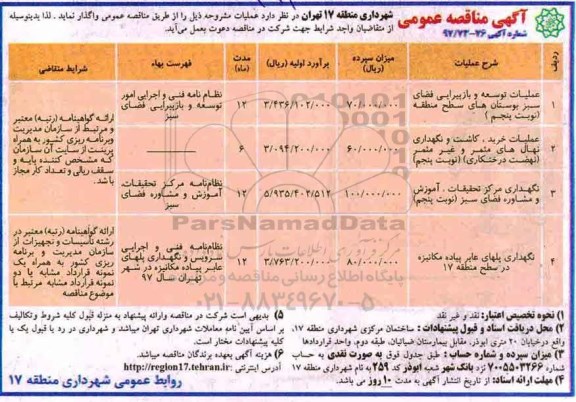 آگهی مناقصه عمومی
شماره آگهی ۲۶-۹۷/۷۳
شهرداری منطقه ۱۷ تهران در نظر دارد عملیات مشروحه ذیل را از طریق مناقصه عمومی واگذار نماید . لذا بدینوسیله
از متقاضیان واجد شرایط جهت شرکت در مناقصه دعوت بعمل می‌آید.
ردیف شرح عملیات میزان سپرده (ریال) برآورد اولیه (ریال) مدت (ماه) فهرست بهاء شرایط متقاضی
۱ عملیات توسعه و بازپیرایی فضای سبز بوستان های سطح منطقه (نوبت پنجم ) ۷۰/۰۰۰/۰۰۰ ۳/۴۳۶/۱۰۲/۰۰۰ ۱۲ نظام نامه فنی و اجرایی امور توسعه و بازپیرایی فضای سبز
۲ عملیات خرید ، کاشت و نگهداری نهال های مثمر و غیر مثمر (نهضت درختکاری) (نوبت پنجم) ۶۰/۰۰۰/۰۰۰ ۳/۰۹۴/۲۰۰/۰۰۰ ۶
۳ نگهداری مرکز تحقیقات ، آموزش و مشاوره فضای سبز (نوبت پنجم) ۱۰۰/۰۰۰/۰۰۰ ۵/۹۳۵/۴۰۴/۵۱۲ ۱۲ نظام‌نامه مرکز تحقیقات، آموزش و مشاوره فضای سبز
ارائه گواهینامه (رتبه) معتبر
و مرتبط از سازمان مدیریت
وبرنامه ریزی کشور به همراه
پرینت از سایت آن سازمان
که مشخص کننده پایه و
سقف ریالی و تعداد کار مجاز
باشد.
۴ نگهداری پلهای عابر پیاده مکانیزه در سطح منطقه ۱۷ ۸۰/۰۰۰/۰۰۰ ۲/۷۶۳/۲۰۰/۰۰۰ ۱۲ نظام‌نامه فنی و اجرایی سرویس و نگهداری پلهای عابر پیاده مکانیزه در شهر تهران سال ۹۷
ارائه گواهینامه (رتبه) معتبر در
رشته تأسیسات و تجهیزات از
سازمان مدیریت و برنامه
ریزی کشور به همراه یک
نمونه قرارداد مشابه یا دو
نمونه قرارداد مشابه مرتبط با
موضوع مناقصه
ParsNamadData
پایگاه اطلاع رسانی مناقصه و مزایده
۰۲۱-۸۸۳۴۹۶۷۰-۵
۱) نحوه تخصیص اعتبار: نقد و غیر نقد
۲) محل دریافت اسناد و قبول پیشنهادات : ساختمان مرکزی شهرداری منطقه ۱۷،
واقع درخیابان ۲۰ متری ابوذر، مقابل بیمارستان ضیائیان، طبقه دوم، واحد قراردادها
۳) میزان سپرده و شماره حساب : طبق جدول فوق به صورت نقدی به حساب
شماره ۷۰۰۵۵۰۳۲۶۶ نزد بانک شهر شعبه ابوذر کد ۲۵۹ به نام شهرداری منطقه ۱۷
۴) مهلت ارائه اسناد: از تاریخ انتشار آگهی به مدت ۱۰ روز می باشد.
۵) بدیهی است شرکت در مناقصه وارائه پیشنهاد به منزله قبول کلیه شروط وتکالیف
بر اساس آیین نامه معاملات شهرداری تهران میباشد و شهرداری در رد یا قبول یک یا
کلیه پیشنهادات مختار است.
۶) هزینه آگهی بعهده برندگان مناقصه میباشد.
آدرس اینترنتی :http://region17.tehran.ir
روابط عمومی شهرداری منطقه ۱۷